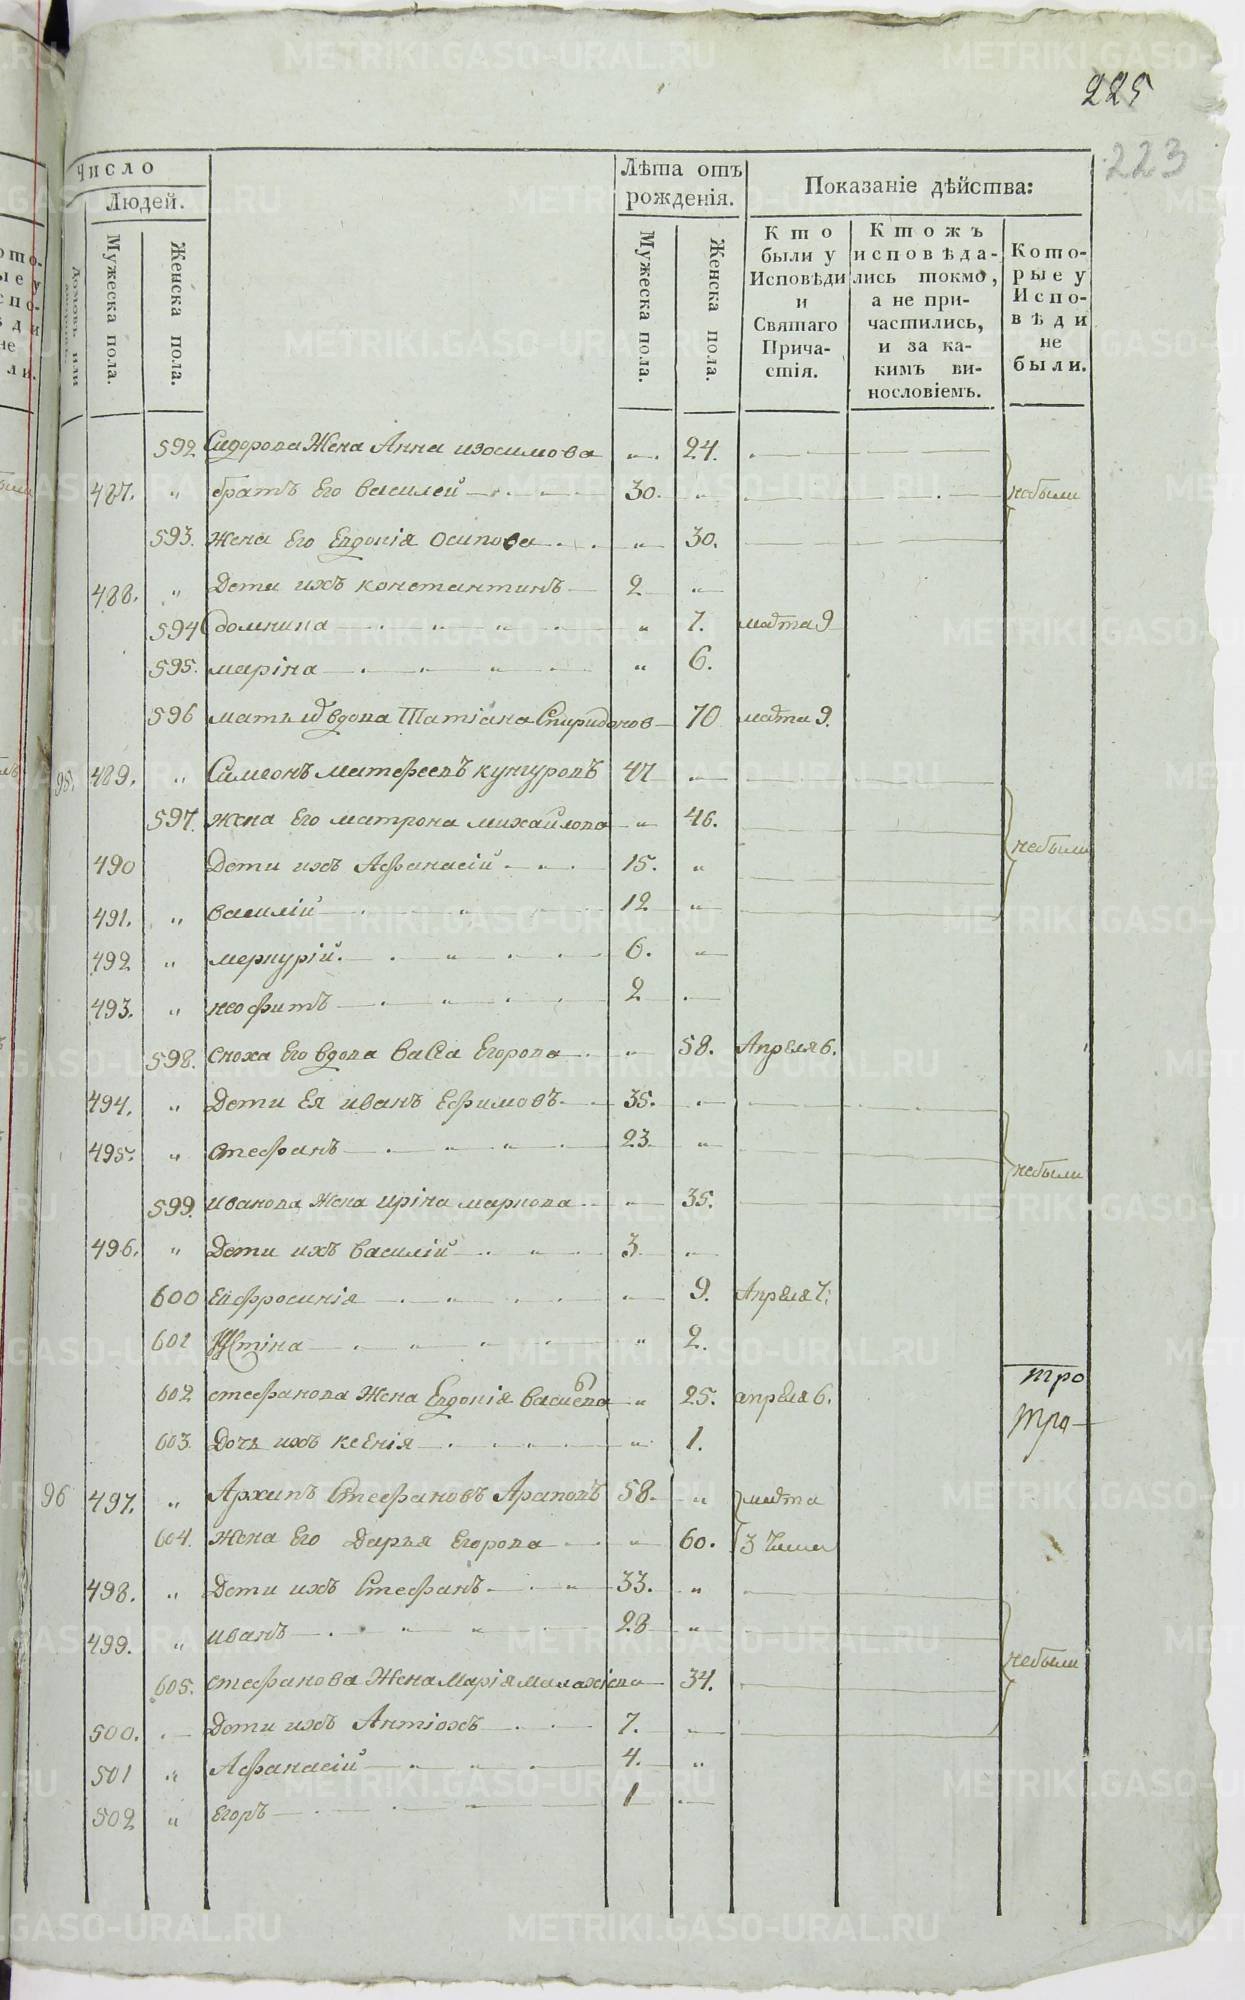 225
223
Число
Людей.
Домовъ или
Мужеска пола.
Женска пола.
Лѣта отъ
рожденія.
Мужеска пола.
Женска пола.
Показаніе дѣйства:
Кто
были у
Исповѣди
и
Святаго
Прича-
стія.
Ктожъ
исповѣда-
лись токмо,
а не при-
частились,
и за ка-
кимъ ви-
нословіемъ.
Кото-
рые у
Испо-
вѣди
не
были.
592 Сидорова Жена Анна изосимова „ 24.
487. „ братъ Его василей 30. „ небыли
593. Жена Его Евдокія осипова „ 30.
488. „ Дети ихъ константинъ 2 „
594 домнина „ 7. марта 9
595. маріна „ 6.
596 мать их вдова Татіана Спиридонов 70 марта 9.
95. 489. „ Симеонъ матфеевъ кунгуровъ 47
597. жена Его матрона михайлова „ 46.
490 Дети ихъ Афанасій 15. „ небыли
491. „ василій 12 „
492 „ меркурій. 6. „
493. „ неофитъ 2
598. сноха Его вдова васса Егорова „ 58. Апреля 6.
494. „ Дети Ея иванъ Ефимовъ 35.
495. „ стефанъ 23 „ небыли
599. иванова жена иріна маркова „ 35.
496. „ Дети ихъ василій 3
600 Евфросинія „ 9. Апреля 7.
601 Устіна „ 2.
602 стефанова Жена Евдокія василева „ 25. апреля 6.
тро
603. Дочь ихъ ксенія „ 1.
тро
96 497. „ Архипъ Стефановъ Араповъ 58. „ марта
604. жена Его Дарья Егорова „ 60. 3 числа
498. „ Дети ихъ Стефанъ 33. „
499. „ иванъ 28 „ небыли
605. стефанова Жена Марія малахіева 34.
500. Дети ихъ Антіохъ 7.
501 „ Афанасій 4. „
502 „ Егоръ 1